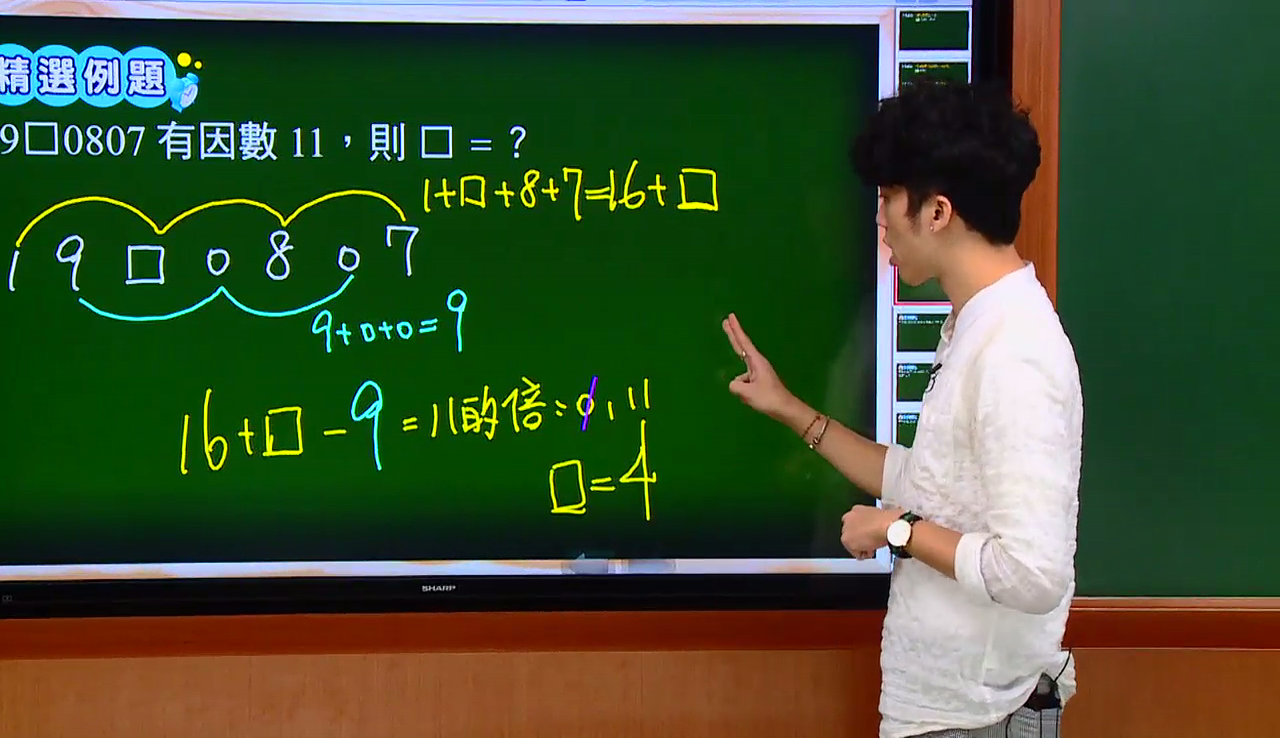 精選例題
9□0807 有因數 11，則 □ = ?
1+□+8+7=16+□
1 9 □ 0 8 0 7
9+0+0=9
16+□-9=11的倍:0,11
□=4
SHARP